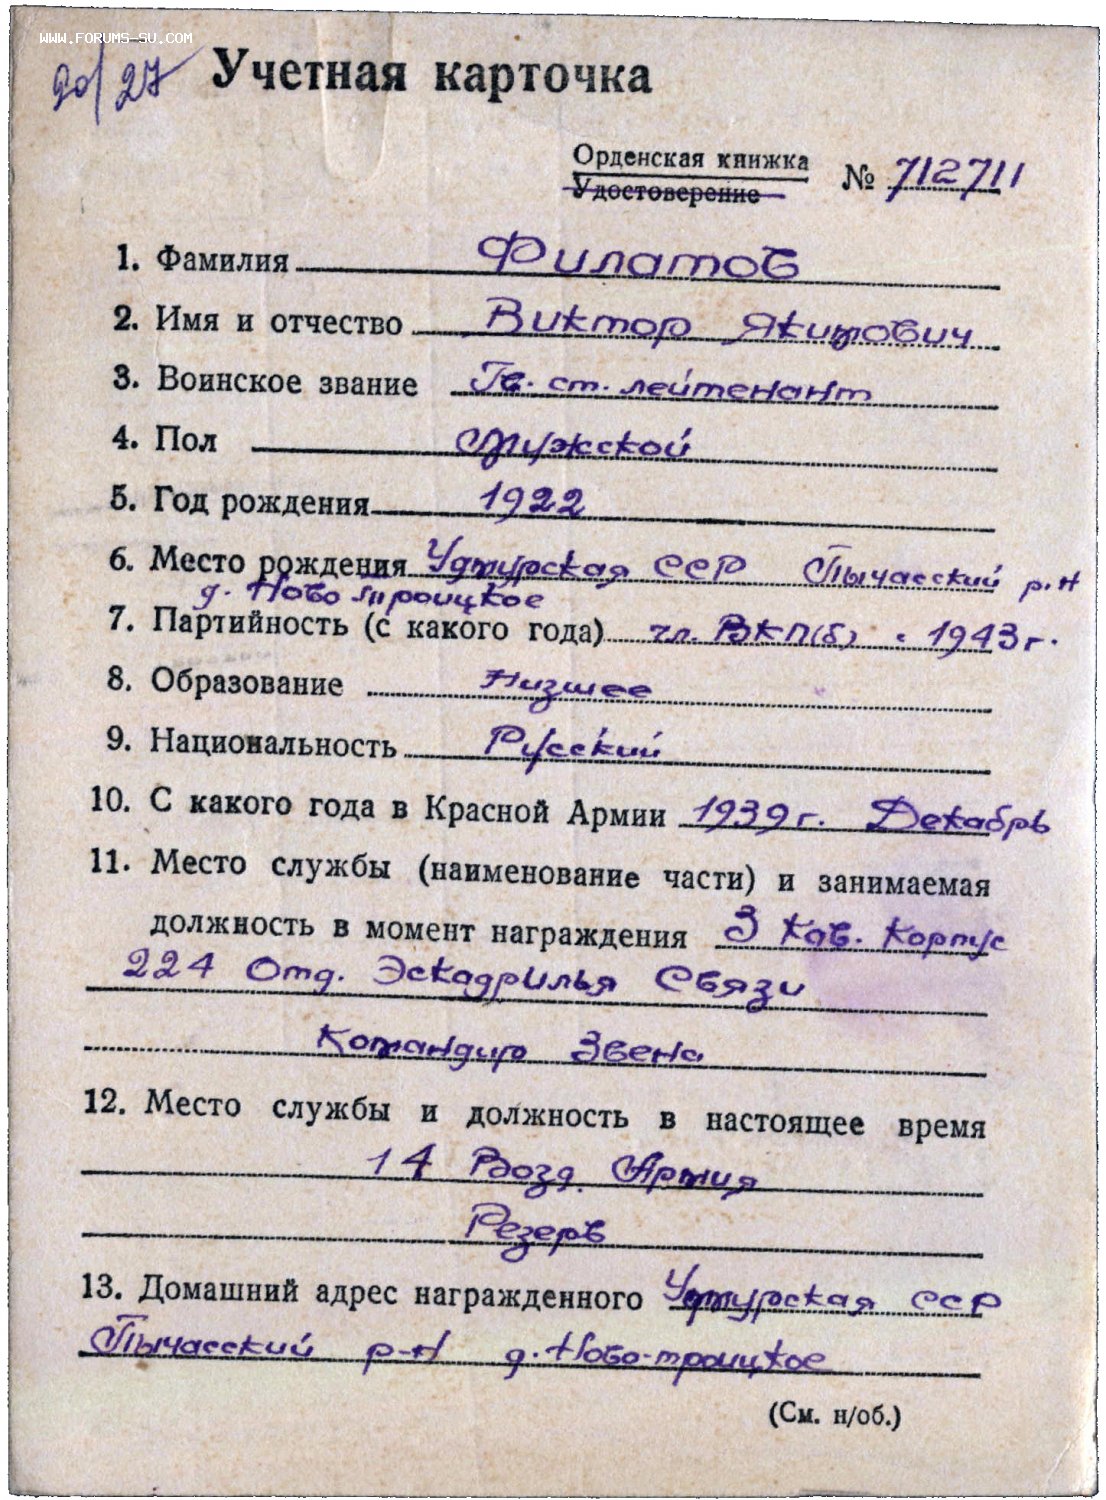 WWW.FORUMS-SU.COM
20/27
Учетная карточка
Орденская книжка
Удостоверение
№ 712711
1. Фамилия Филатов
2. Имя и отчество Виктор Якимович
3. Воинское звание Гв. ст. лейтенант
4. Пол Мужской
5. Год рождения 1922
6. Место рождения Удмурская ССР Пычасский р-н
д. Ново Троицкое
7. Партийность (с какого года) чл. ВКП(б) с 1943 г.
8. Образование Низшее
9. Национальность Русский
10. С какого года в Красной Армии 1939 г. Декабрь
11. Место службы (наименование части) и занимаемая
должность в момент награждения 3 Кав. Корпус
224 Отд. Эскадрилья Связи
Командир Звена
12. Место службы и должность в настоящее время
14 Возд. Армия
Резерв
13. Домашний адрес награжденного Удмурская ССР
Пычасский р-н д. Ново-троицкое
(См. н/об.)